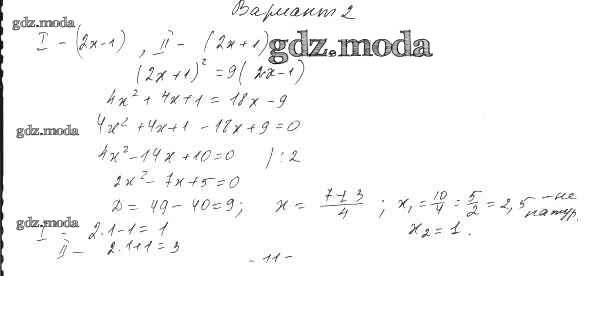 Вариант 2
gdz.moda
I - (2x-1), II - (2x+1)
gdz.moda
(2x+1)² = 9(2x-1)
4x² + 4x+1 = 18x - 9
gdz.moda 4x² + 4x+1 - 18x+9=0
4x² - 14x + 10=0 /:2
2x² - 7x+5=0
D = 49 - 40=9; x = (7±3)/4; x₁ = 10/4 = 5/2 = 2,5 - не натур.
gdz.moda
I - 2.1-1= 1 x₂ = 1.
II - 2.1+1= 3
- 11 -